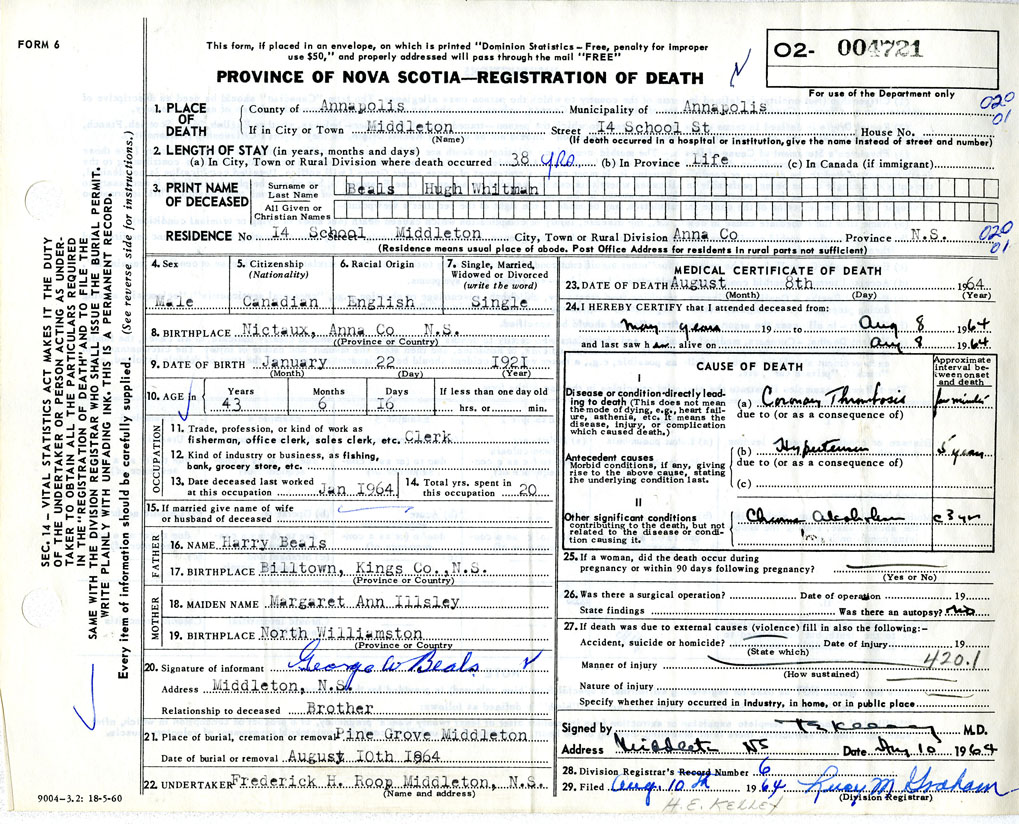 FORM 6
This form, if placed in an envelope, on which is printed "Dominion Statistics – Free, penalty for improper
use $50," and properly addressed will pass through the mail "FREE"
PROVINCE OF NOVA SCOTIA—REGISTRATION OF DEATH
02- 004721
For use of the Department only
020
01
1. PLACE OF DEATH
County of Annapolis Municipality of Annapolis
If in City or Town Middleton Street I4 School St House No.
(Name) (If death occurred in a hospital or institution, give name instead of street and number)
2. LENGTH OF STAY (in years, months and days)
(a) In City, Town or Rural Division where death occurred 38 yrs (b) In Province Life (c) In Canada (if immigrant)
3. PRINT NAME OF DECEASED
Surname or Last Name Beals Hugh Whitman
All Given or Christian Names
RESIDENCE No I4 School Street Middleton City, Town or Rural Division Anna Co Province N.S.
020
01
(Residence means usual place of abode. Post Office Address for residents in rural parts not sufficient)
4. Sex
Male
5. Citizenship
(Nationality)
Canadian
6. Racial Origin
English
7. Single, Married,
Widowed or Divorced
(write the word)
Single
8. BIRTHPLACE Nictaux, Anna Co N.S.
((Province or Country)
9. DATE OF BIRTH January 22 1921
(Month) (Day) (Year)
10. AGE in
Years Months Days If less than one day old
43 6 I6 hrs. or min.
OCCUPATION
11. Trade, profession, or kind of work as
fisherman, office clerk, sales clerk, etc. Clerk
12. Kind of industry or business, as fishing,
bank, grocery store, etc.
13. Date deceased last worked
at this occupation Jan 1964
14. Total yrs. spent in
this occupation 20
15. If married give name of wife
or husband of deceased
FATHER
16. NAME Harry Beals
17. BIRTHPLACE Billtown, Kings Co., N.S.
(Province or Country)
MOTHER
18. MAIDEN NAME Margaret Ann Illsley
19. BIRTHPLACE North Williamston
(Province or Country)
20. Signature of informant George W Beals
Address Middleton, N.S.
Relationship to deceased Brother
21. Place of burial, cremation or removal Pine Grove Middleton
Date of burial or removal August I0th I964
22. UNDERTAKER Frederick H. Roop Middleton, N.S.
(Name and address)
MEDICAL CERTIFICATE OF DEATH
23. DATE OF DEATH August 8th 1964
(Month) (Day) (Year)
24. I HEREBY CERTIFY that I attended deceased from:
many years 19 to Aug 8 1964
and last saw him alive on Aug 8 1964
CAUSE OF DEATH
Approximate
interval between
onset
and death
I
Disease or condition directly leading
to death (This does not mean
the mode of dying, e.g., heart failure,
asthenia, etc. It means the
disease, injury, or complication
which caused death.)
(a) Coronary Thrombosis
due to (or as a consequence of)
few minutes
Antecedent causes
Morbid conditions, if any, giving
rise to the above cause, stating
the underlying condition last.
(b) Hypertension 5 years
due to (or as a consequence of)
(c)
II
Other significant conditions
contributing to the death, but not
related to the disease or condition
causing it.
Chronic Alcoholism c 3 yrs
25. If a woman, did the death occur during
pregnancy or within 90 days following pregnancy?
(Yes or No)
26. Was there a surgical operation? Date of operation 19
State findings Was there an autopsy? no
27. If death was due to external causes (violence) fill in also the following:–
Accident, suicide or homicide? Date of injury 19
(State which)
Manner of injury 420.1
(How sustained)
Nature of injury
Specify whether injury occurred in industry, in home, or in public place
Signed by M.D.
Address Middleton NS Date Aug 10 1964
28. Division Registrar's Record Number 6
29. Filed Aug. 10th 1964 Lucy M Graham
(Division Registrar)
H.E. KELLEY
9004–3.2: 18-5-60
SEC. 14 – VITAL STATISTICS ACT MAKES IT THE DUTY
OF THE UNDERTAKER OR PERSON ACTING AS UNDERTAKER
TO OBTAIN ALL THE PARTICULARS REQUIRED
IN THE "REGISTRATION OF DEATH" AND TO FILE THE
SAME WITH THE DIVISION REGISTRAR WHO SHALL ISSUE THE BURIAL PERMIT.
WRITE PLAINLY WITH UNFADING INK. THIS IS A PERMANENT RECORD.
Every item of information should be carefully supplied. (See reverse side for instructions.)